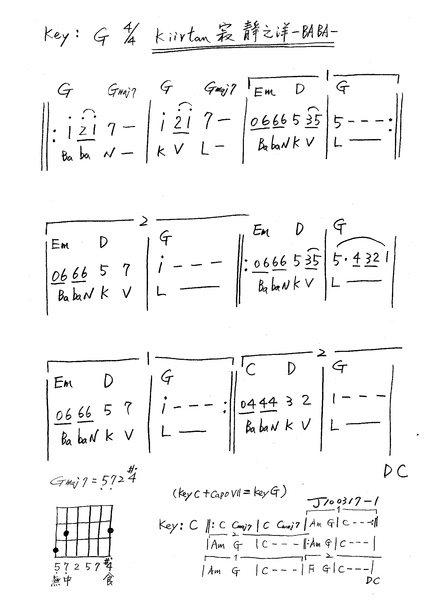 Key: G 4/4 Kiirtan 寂靜之洋-BABA-
G Gmaj7 G Gmaj7 Em D G
‖: i 2i 7 — | i 2i 7 — | 0666 5 35 | 5 - - - :‖
Ba ba N — K V L — BabaN K V L —
2
Em D G Em D G
0666 5 7 | i - - - ‖: 0666 5 35 | 5· 4 32 1 |
BabaN K V L — BabaN K V L —
1 2
Em D G C D G
0666 5 7 | i - - - :‖ 0444 3 2 | 1 - - - |
BabaN K V L — BabaN K V L —
DC
Gmaj7 = 572#4
(Key C + Capo VII = Key G)
J100317-1
Key: C ‖: C Cmaj7 | C Cmaj7 | Am G | C - - - :‖
2
| Am G | C - - - |‖: Am G | C - - - |
1 2
| Am G | C - - - | F G | C - - - |
DC
5 7 2 5 7 #4
無中 食